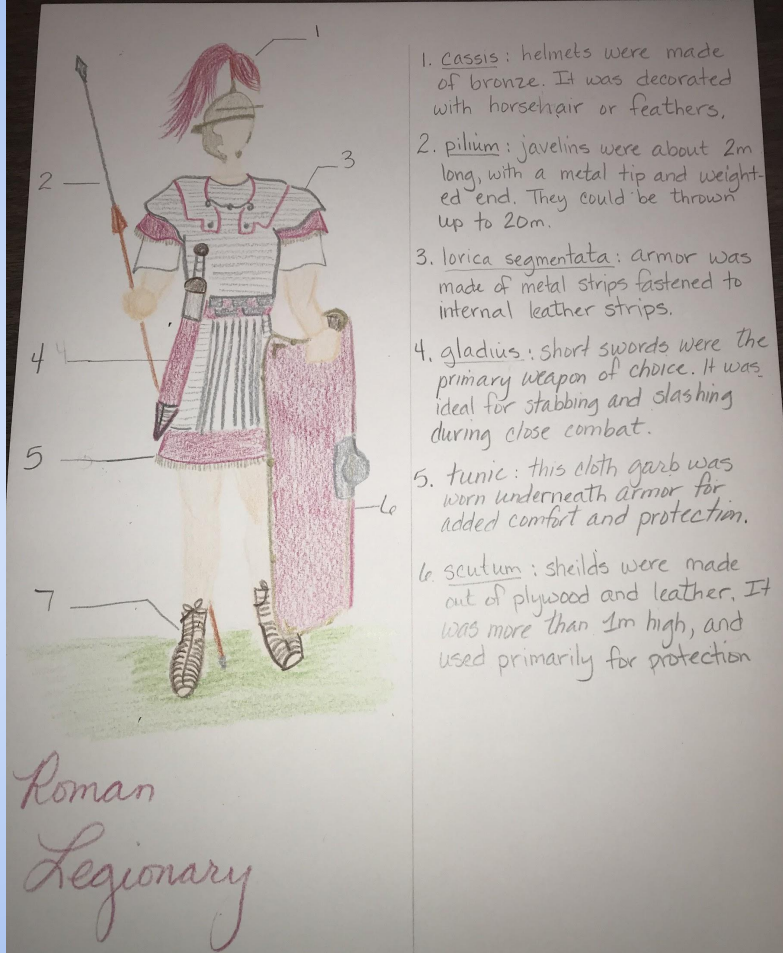 1
2
3
4
5
6
7
Roman
Legionary
1. cassis : helmets were made
of bronze. It was decorated
with horsehair or feathers.
2. pilium : javelins were about 2m
long, with a metal tip and weight-
ed end. They could be thrown
up to 20m.
3. lorica segmentata : armor was
made of metal strips fastened to
internal leather strips.
4. gladius : short swords were the
primary weapon of choice. It was
ideal for stabbing and slashing
during close combat.
5. tunic : this cloth garb was
worn underneath armor for
added comfort and protection.
6. scutum : sheilds were made
out of plywood and leather. It
was more than 1m high, and
used primarily for protection